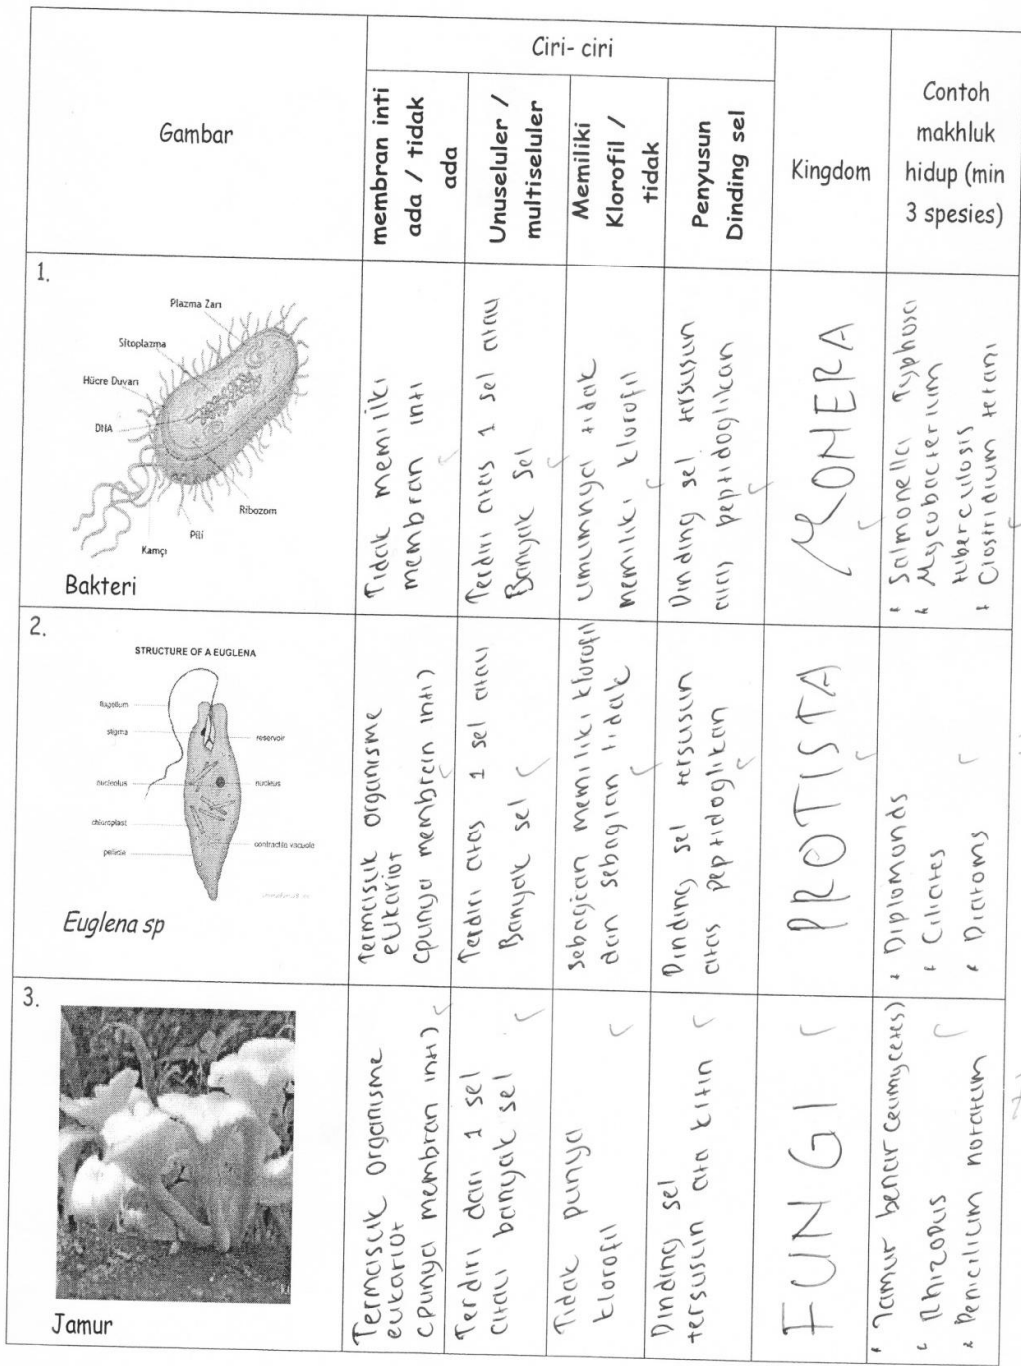 Gambar
Ciri- ciri
membran inti
ada / tidak
ada
Unuseluler /
multiseluler
Memiliki
Klorofil /
tidak
Penyusun
Dinding sel
Kingdom
Contoh
makhluk
hidup (min
3 spesies)
1.
Plazma Zarı
Sitoplazma
Hücre Duvarı
DNA
Ribozom
Pili
Kamçı
Bakteri
Tidak memiliki
membran inti
Terdiri atas 1 sel atau
Banyak sel
umumnya tidak
memiliki klorofil
Dinding sel tersusun
atas peptidoglikan
MONERA
Salmonella Typhosa
Mycobacterium
tuberculosis
Clostridium tetani
2.
STRUCTURE OF A EUGLENA
flagellum
stigma
reservoir
nucleolus
nucleus
chloroplast
contractile vacuole
pellicle
Euglena sp
Termasuk organisme
eukariot
(punya membran inti)
Terdiri atas 1 sel atau
Banyak sel
sebagian memiliki klorofil
dan sebagian tidak
Dinding sel tersusun
atas peptidoglikan
PROTISTA
Diplomonds
Ciliates
Diatoms
3.
Jamur
Termasuk organisme
eukariot
(punya membran inti)
Terdiri dari 1 sel
atau banyak sel
Tidak punya
klorofil
Dinding sel
tersusun ata kitin
FUNGI
Jamur benar (eumycetes)
Rhizopus
Penicilium notatum